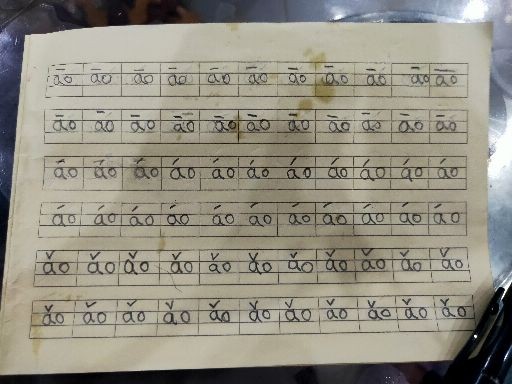 āo āo āo āo āo āo āo āo āo āo āo
āo āo āo āo āo āo āo āo āo āo āo
áo áo áo áo áo áo áo áo áo áo áo
áo áo áo áo áo áo áo áo áo áo áo
ǎo ǎo ǎo ǎo ǎo ǎo ǎo ǎo ǎo ǎo ǎo
ǎo ǎo ǎo ǎo ǎo ǎo ǎo ǎo ǎo ǎo ǎo